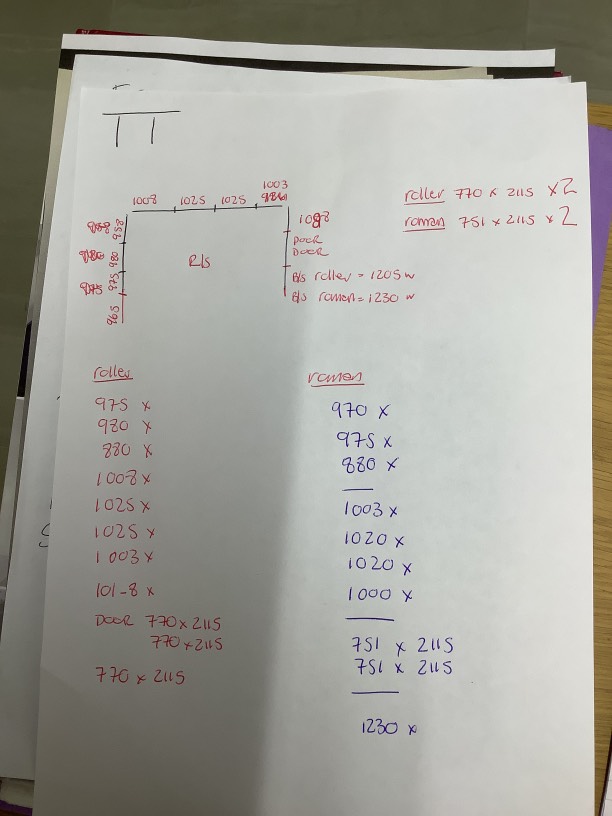 1008 1025 1025 1003
roller 770 x 2115 x2
roman 751 x 2115 x 2
958
980
975
965
R/S
DOOR
DOOR
B/S roller = 1205 w
B/S roman = 1230 w
roller
975 x
980 x
880 x
1008 x
1025 x
1025 x
1003 x
101-8 x
DOOR 770 x 2115
770 x 2115
770 x 2115
roman
970 x
975 x
880 x
1003 x
1020 x
1020 x
1000 x
751 x 2115
751 x 2115
1230 x